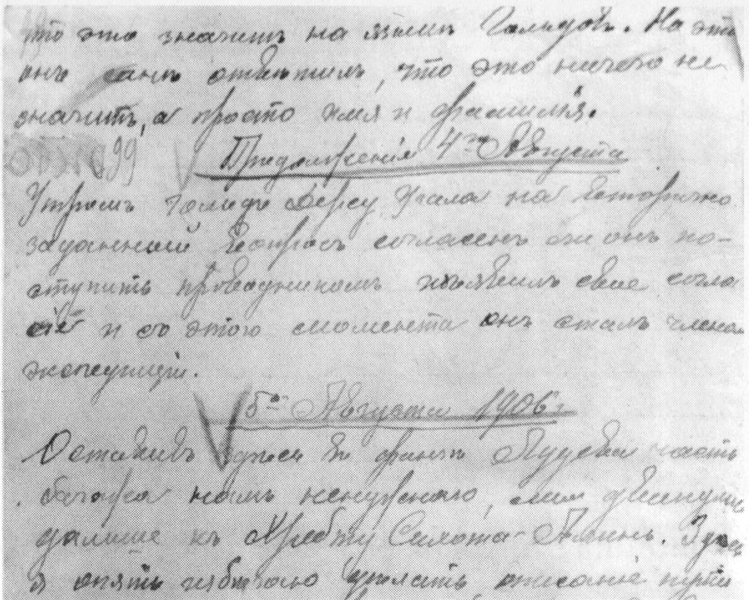 что это значитъ на языке Гольдовъ. На это
онъ самъ отвѣтилъ, что это ничего не
значитъ, а просто имя и фамилiя.
Продолженiе 4го Августа
99
Утромъ Гольдъ Дерсу Узала на вторично
заданный вопросъ согласенъ ли онъ по-
ступить проводникомъ изъявилъ свое согла
сiе и съ этого момента онъ сталъ членом
экспедицiи.
5го Августа 1906 г
Оставивъ здѣсь въ фанзѣ часть
багажа намъ ненужнаго, мы двинулись
дальше къ Хребту Сихота-Алинь. Здѣсь
я опять избѣгаю описанiе пути